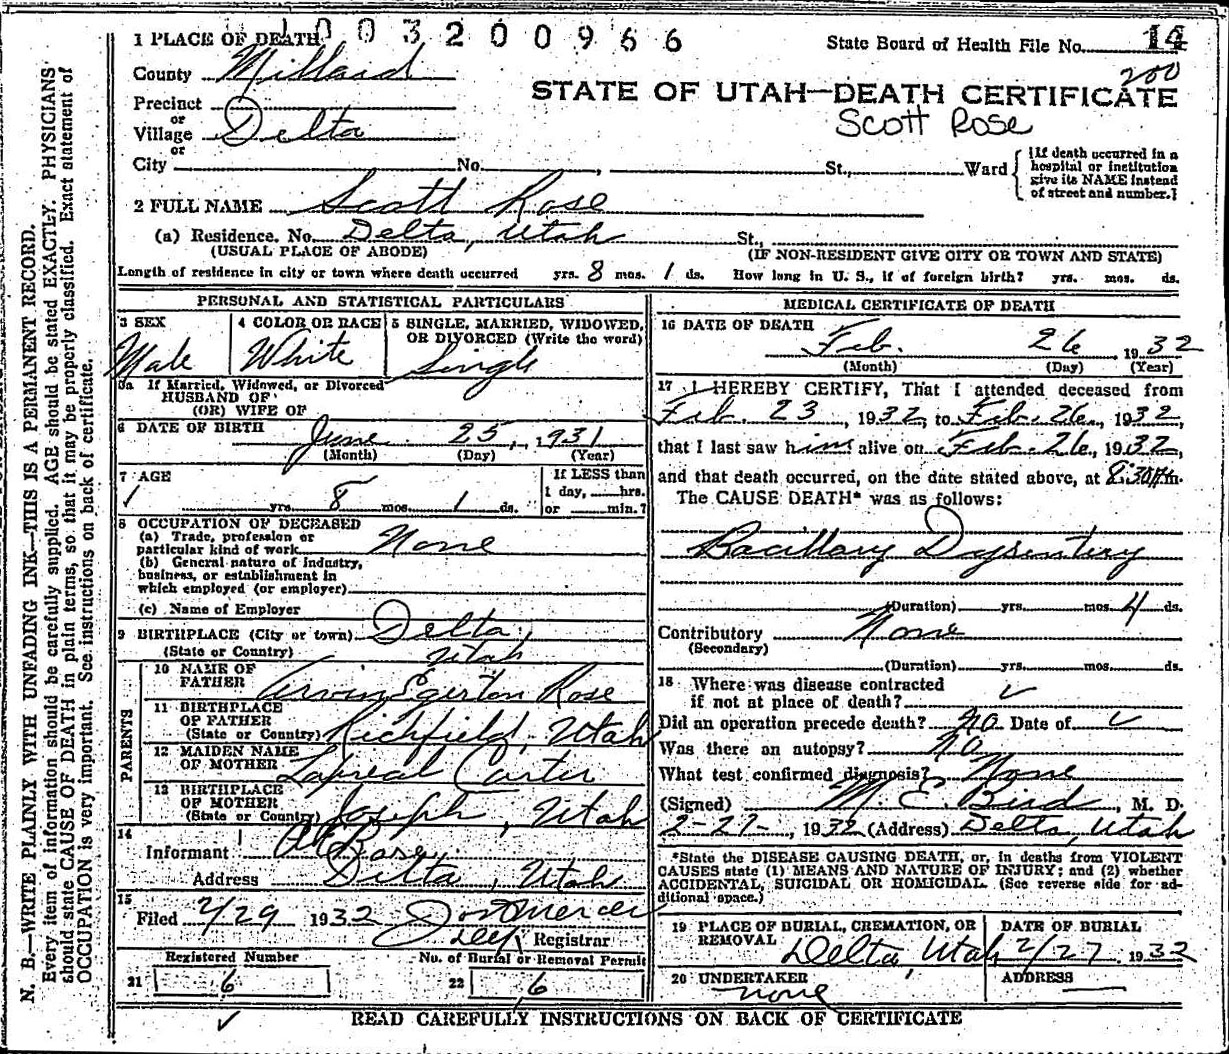 1003200966
1 PLACE OF DEATH
State Board of Health File No. 14
County Millard
200
STATE OF UTAH—DEATH CERTIFICATE
Scott Rose
Precinct
or
Village Delta
or
City No. , St., Ward
{If death occurred in a
hospital or institution
give its NAME instead
of street and number.}
2 FULL NAME Scott Rose
(a) Residence. No. Delta, Utah St.,
(USUAL PLACE OF ABODE) (IF NON-RESIDENT GIVE CITY OR TOWN AND STATE)
Length of residence in city or town where death occurred yrs. 8 mos. 1 ds. How long in U. S., if of foreign birth? yrs. mos. ds.
PERSONAL AND STATISTICAL PARTICULARS
3 SEX
Male
4 COLOR OR RACE
White
5 SINGLE, MARRIED, WIDOWED,
OR DIVORCED (Write the word)
Single
5a If Married, Widowed, or Divorced
HUSBAND OF
(OR) WIFE OF
6 DATE OF BIRTH June 25, 1931
(Month) (Day) (Year)
7 AGE
1 yrs. 8 mos. 1 ds.
If LESS than
1 day, hrs.
or min.?
8 OCCUPATION OF DECEASED
(a) Trade, profession or
particular kind of work None
(b) General nature of industry,
business, or establishment in
which employed (or employer)
(c) Name of Employer
9 BIRTHPLACE (City or town) Delta,
(State or Country) Utah
PARENTS
10 NAME OF
FATHER Arvin Egerton Rose
11 BIRTHPLACE
OF FATHER
(State or Country) Richfield, Utah
12 MAIDEN NAME
OF MOTHER Lapreal Carter
13 BIRTHPLACE
OF MOTHER
(State or Country) Joseph, Utah
14
Informant A E Rose
Address Delta, Utah
15
Filed 2/29 1932
Registrar
Registered Number No. of Burial or Removal Permit
21 6 22 6
MEDICAL CERTIFICATE OF DEATH
16 DATE OF DEATH
Feb. 26 1932
(Month) (Day) (Year)
17 I HEREBY CERTIFY, That I attended deceased from
Feb. 23, 1932, to Feb. 26, 1932,
that I last saw him alive on Feb. 26, 1932,
and that death occurred, on the date stated above, at 8:30 m.
The CAUSE DEATH* was as follows:
Bacillary Dysentery
(Duration) yrs. mos. 4 ds.
Contributory None
(Secondary)
(Duration) yrs. mos. ds.
18 Where was disease contracted
if not at place of death? ✓
Did an operation precede death? No Date of ✓
Was there an autopsy? No
What test confirmed diagnosis? None
(Signed) M. E. Bird, M. D.
2-27-, 1932 (Address) Delta, Utah
*State the DISEASE CAUSING DEATH, or, in deaths from VIOLENT
CAUSES state (1) MEANS AND NATURE OF INJURY; and (2) whether
ACCIDENTAL, SUICIDAL OR HOMICIDAL. (See reverse side for ad-
ditional space.)
19 PLACE OF BURIAL, CREMATION, OR
REMOVAL Delta, Utah
DATE OF BURIAL
2/27 1932
20 UNDERTAKER
none
ADDRESS
READ CAREFULLY INSTRUCTIONS ON BACK OF CERTIFICATE
N. B.—WRITE PLAINLY WITH UNFADING INK—THIS IS A PERMANENT RECORD.
Every item of information should be carefully supplied. AGE should be stated EXACTLY. PHYSICIANS
should state CAUSE OF DEATH in plain terms, so that it may be properly classified. Exact statement of
OCCUPATION is very important. See instructions on back of certificate.